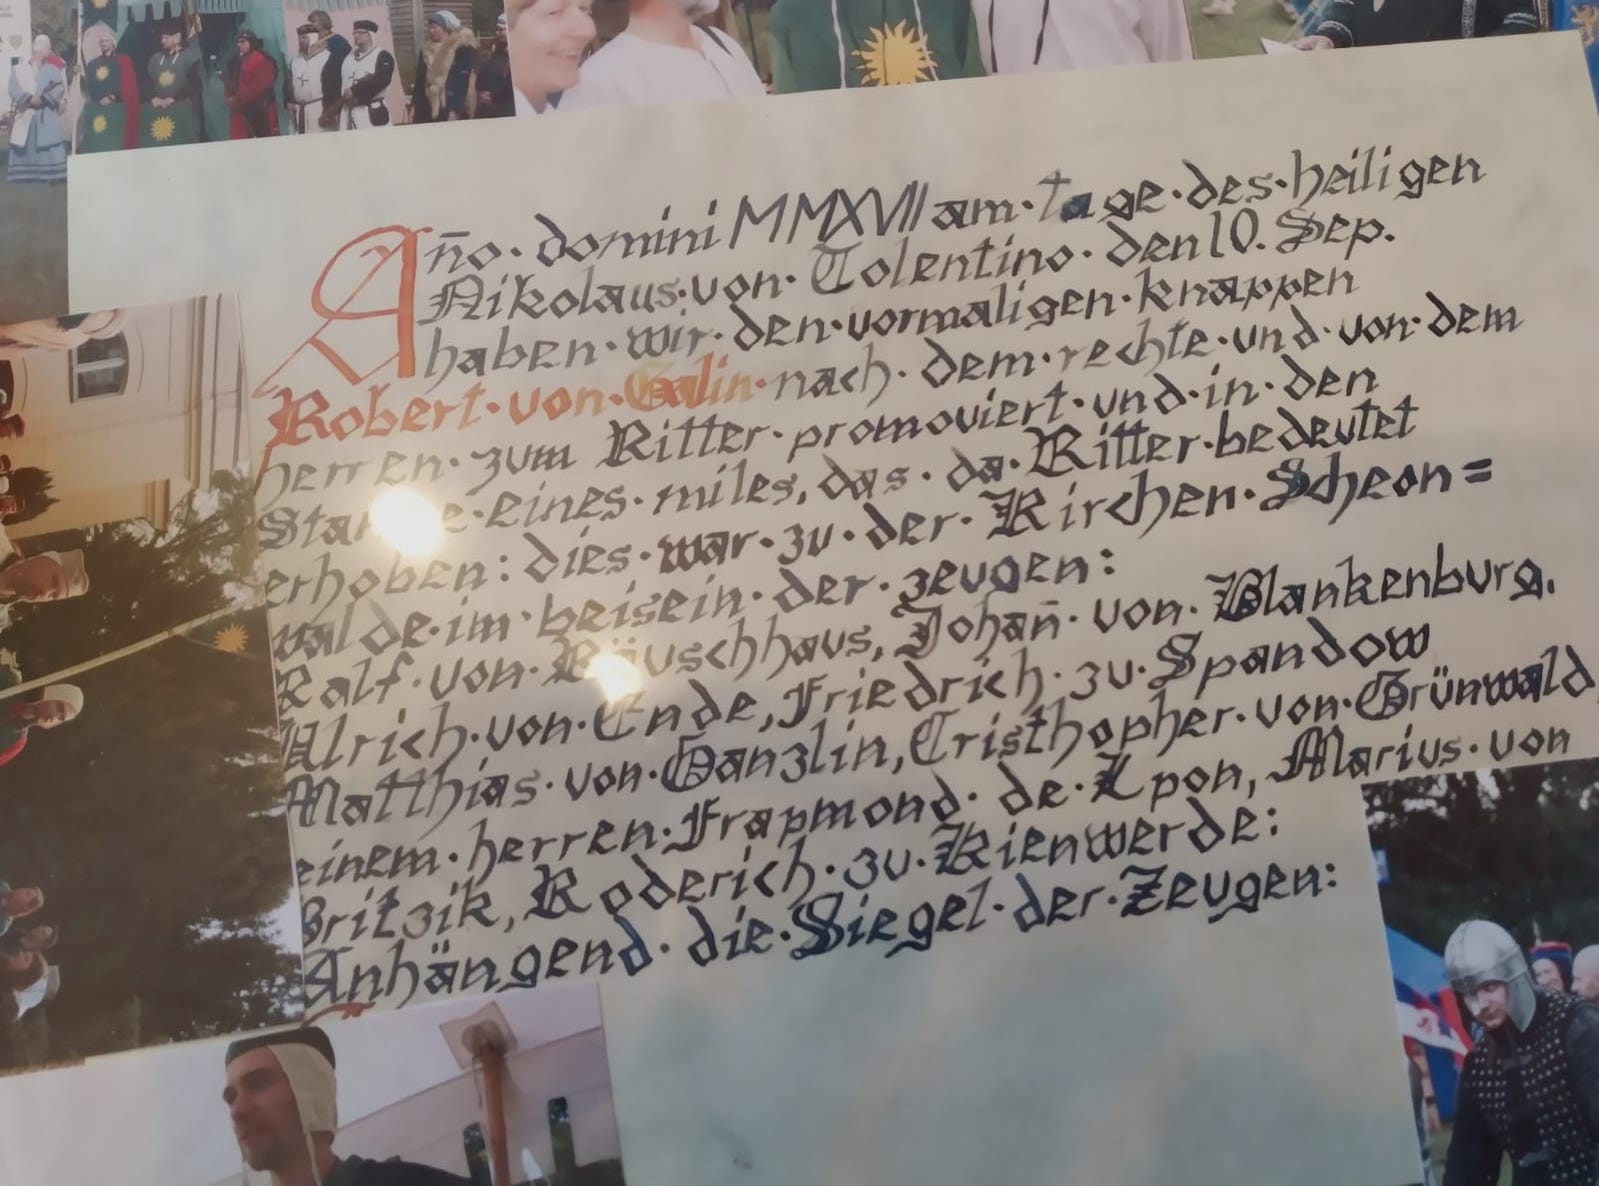 An̄o · domini MMXVII am · tage · des · heiligen
Nikolaus · von · Tolentino · den 10. Sep.
haben · wir · den · vormaligen · knappen
Robert · von · Galin · nach · dem · rechte · und · von · dem
herren · zum Ritter · promoviert · und · in · den
eines · miles, das · da · Ritter · bedeutet
erhoben : dies · war · zu · der · Kirchen · Scheon =
walde · im · beisein · der · zeugen :
Ralf · von · Räuschhaus, Johan̄ · von · Blankenburg.
Ulrich · von · Ende, Friedrich · zu · Spandow
Matthias · von · Ganzlin, Cristhopher · von · Grünwald,
einem · herren · Frapmond · de · Lpon, Marius · von
Britzik, Roderich · zu · Rienwerde :
Anhängend · die · Siegel · der · Zeugen :